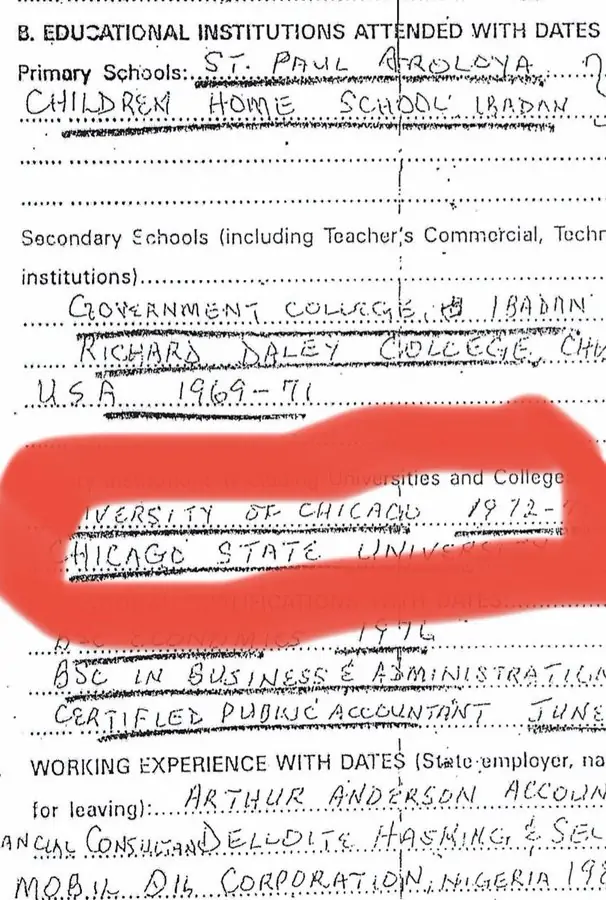 B. EDUCATIONAL INSTITUTIONS ATTENDED WITH DATES
Primary Schools: ST. PAUL AROLOYA
CHILDREN HOME SCHOOL IBADAN
Secondary Schools (including Teacher's Commercial, Techn
institutions)
GOVERNMENT COLLEGE, IBADAN
RICHARD DALEY COLLEGE, CHI
USA 1969-71
Universities and College
IVERSITY OF CHICAGO 1972-
CHICAGO STATE UNIVERSITY
BSC ECONOMICS 1976
BSC IN BUSINESS & ADMINISTRATION
CERTIFIED PUBLIC ACCOUNTANT JUNE
WORKING EXPERIENCE WITH DATES (State employer, na
for leaving): ARTHUR ANDERSON ACCOUN
ANCIAL CONSULTAN DELLOITE HASKING & SEL
MOBIL OIL CORPORATION, NIGERIA 198